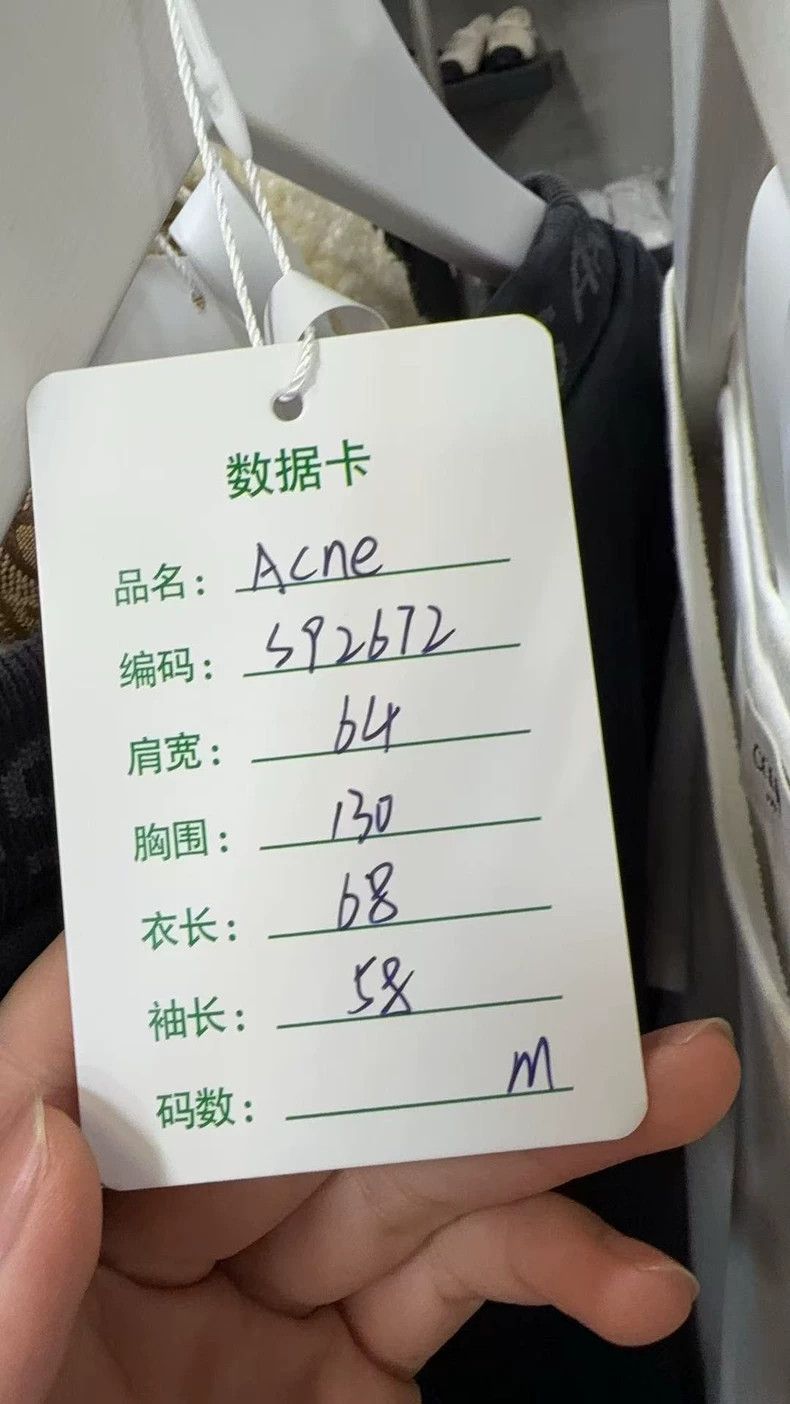 数据卡
品名: Acne
编码: S92672
肩宽: 64
胸围: 130
衣长: 68
袖长: 58
码数: M